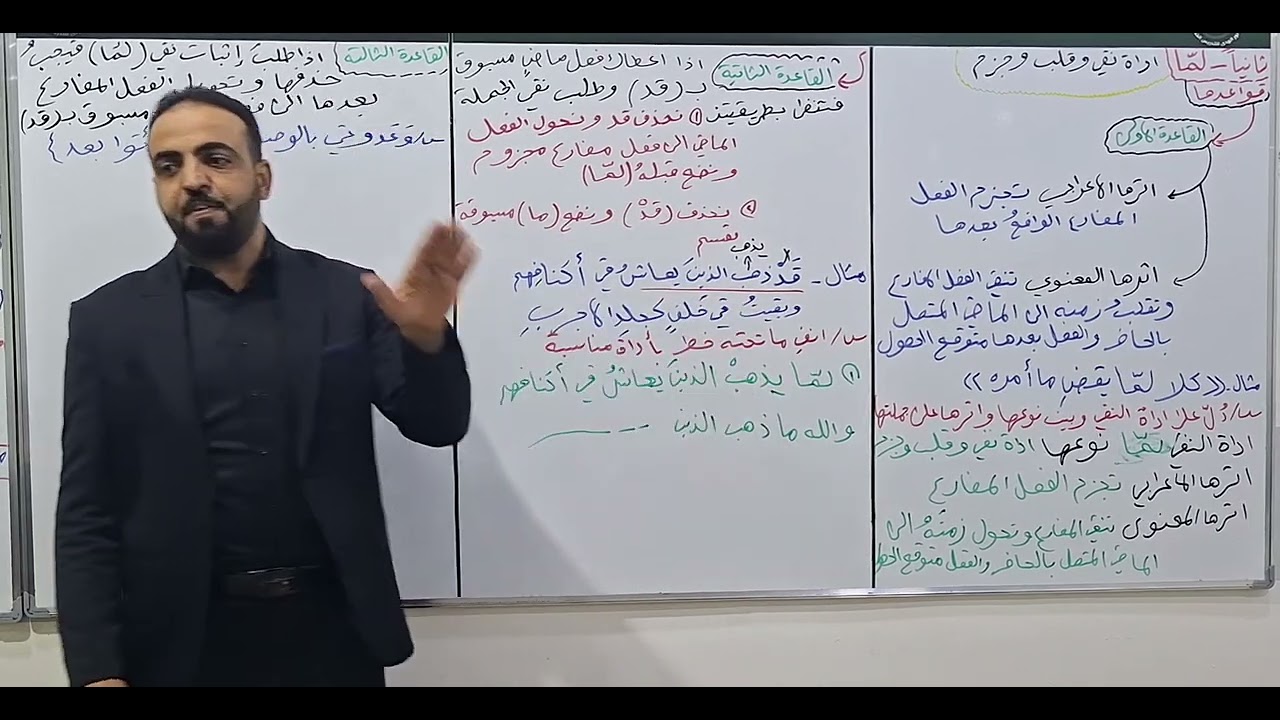 ثانياً - لمّا اداة نفي وقلب وجزم
قواعدها
القاعدة الاولى
اثرها الاعرابي تجزم الفعل
المضارع الواقع بعدها
اثرها المعنوي تنفي الفعل المضارع
وتقلب زمنه الى الماضي المتصل
بالحاضر والفعل بعدها متوقع الحصول
مثال - « كلا لمّا يقضِ ما أمره »
س/ دُلّ على اداة النفي وبين نوعها واثرها على جملتها
اداة النفي لمّا نوعها اداة نفي وقلب وجزم
اثرها الاعرابي تجزم الفعل المضارع
اثرها المعنوي تنفي المضارع وتحول زمنهُ الى
الماضي المتصل بالحاضر والفعل متوقع
القاعدة الثانية اذا اعطاك فعل ماضٍ مسبوق
بـ (قد) وطلب نفي الجملة
فتنفى بطريقتين ① نحذف قد ونحول الفعل
الماضي الى فعل مضارع مجزوم
ونضع قبلهُ (لمّا)
② نحذف (قدْ) ونضع (ما) مسبوقة
بقسم
يذهب
مثال - قَدْ ذهبَ الذينَ يعاش في أكنافِهم
وبقيتُ في خَلفٍ كجلدِ الاجربِ
س/ انفِ ما تحته خط بأداة مناسبة
① لمّا يذهبْ الذينَ يعاشُ في أكنافهم
والله ما ذهب الذين
القاعدة الثالثة اذا طلبَ إثبات نفي (لمّا) فيجبُ
حذفها وتحويل الفعل المضارع
بعدها الى مسبوق بـ (قد)
س/ وَعَدوني بعد }